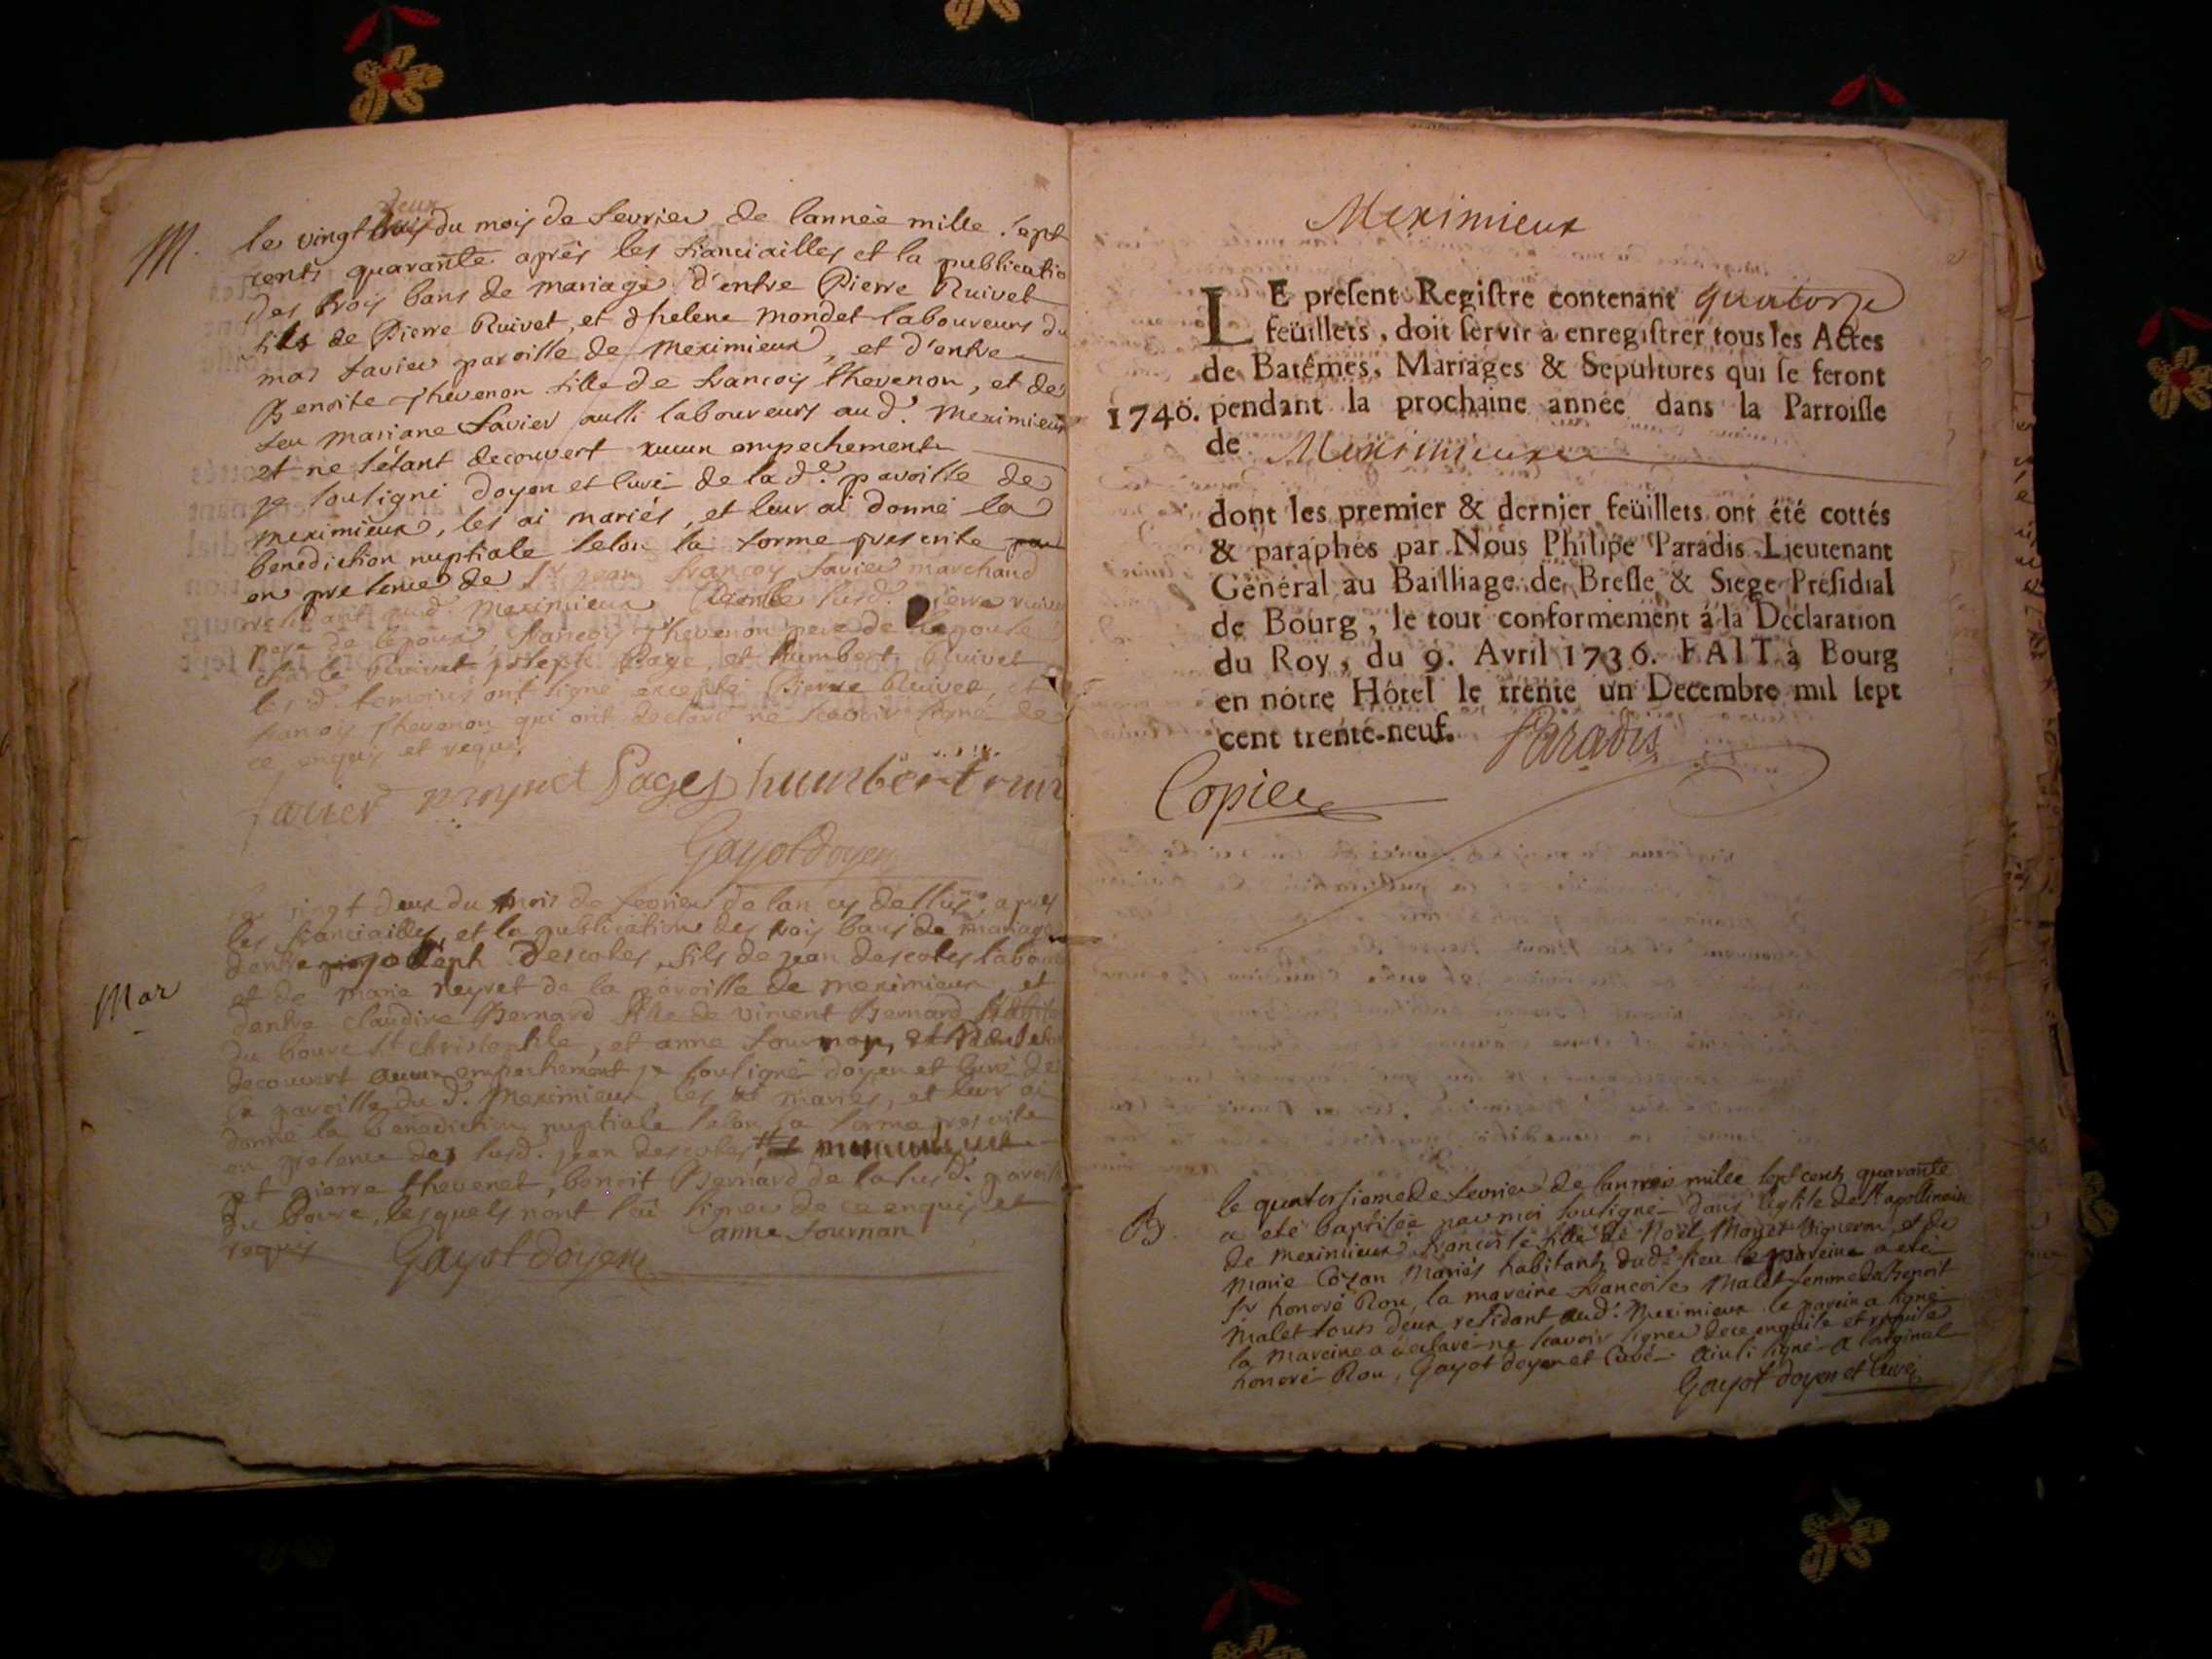 M.
deux
le vingt trois du mois de fevrier de lannèe mille sept
cents quarante après les fianciailles et la publicatio
des trois bans de mariage d'entre Pierre Ruivet
fils de Pierre Ruivet, et dhelene mondet laboureurs du
mas favier paroisse de meximieux, et d'entre
Benoite Thevenon fille de francois thevenon, et de
feu mariane favier aussi laboureurs aud. meximieux
et ne s'étant decouvert aucun empechement
je soussigné doyen et curé de lad.e paroisse de
meximieux, les ai mariés, et leur ai donné la
benediction nuptiale selon la forme prescrite
en presence de Sr jean francois favier marchand
residant aud. meximieux susd. pierre ruivet
pere de lepoux, francois Thevenon pere de lepouse
charle Ruivet joseph Page, et humbert Ruivet
les d. temoins ont signé excepté Pierre Ruivet, et
francois Thevenon qui ont declaré ne scavoir signé de
ce enquis et requis
favier Pages humbert ruiv
Gayot doyen
le vingt deux du mois de fevrier de lan cy dessus, apres
les fianciailles et la publication des trois bans de mariage
dentre joseph Descotes, fils de jean descotes labour
Mar
et de marie neyret de la paroisse de meximieux, et
dentre claudine Bernard fille de viment Bernard
du bourc St christophle, et anne fournon,
decouvert aucun empechement je soussigné doyen et curé de
la paroisse du d. meximieux, les ai mariés, et leur ai
donné la benediction nuptiale selon la forme prescrite
en presence des susd. jean descotes
et pierre thevenet, benoit Bernard de la susd. paroisse
du bourc, lesquels nont sçû signer de ce enquis et
requis anne fournan
Gayot doyen
Meximieux
LE present Registre contenant quatorze
feüillets, doit servir à enregistrer tous les Actes
de Batêmes, Mariages & Sepultures qui se feront
1740. pendant la prochaine année dans la Parroisse
de Meximieux
dont les premier & dernier feüillets ont été cottés
& paraphés par Nous Philipe Paradis Lieutenant
Général au Bailliage de Bresse & Siege Présidial
de Bourg, le tout conformement á la Déclaration
du Roy, du 9. Avril 1736. FAIT à Bourg
en nôtre Hôtel le trente un Decembre mil sept
cent trente-neuf. Paradis
Copie
B.
le quatorsieme de fevrier de lannée mille sept cents quarante
a eté baptisée par moi soussigné dans leglise de St apollinaire
de meximieux francoise fille de Noël Moyet vigneron, et de
marie Cozan mariés habitants dud. lieu le parreine a eté
Sr honoré Rou, la mareine francoise Malet femme de benoit
malet tous deux residant aud. meximieux le parein a signé
la mareine a declaré ne scavoir signer de ce enquise et requise
honoré Rou, Gayot doyen et Curé. Ainsi signé a l'original
Gayot doyen et Curé